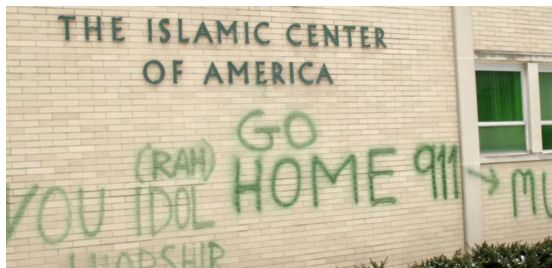 THE ISLAMIC CENTER
OF AMERICA
GO
HOME 911 → MU
(RAH)
YOU IDOL
WORSHIP